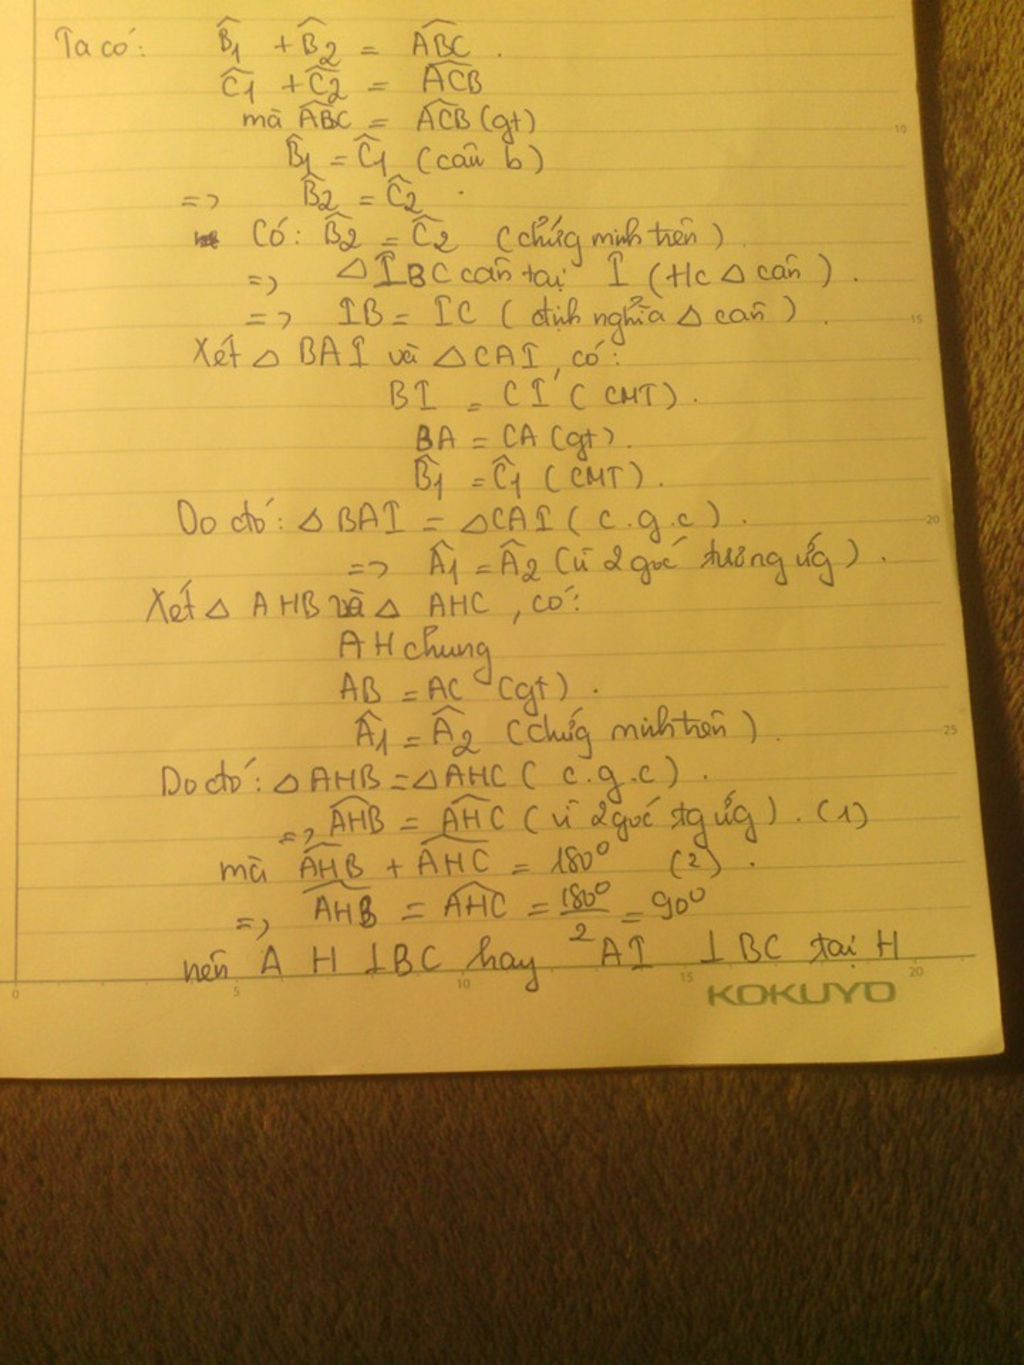 Ta có: B̂1 + B̂2 = ABC.
Ĉ1 + Ĉ2 = ACB
mà ABC = ACB (gt)
B̂1 = Ĉ1 (câu b)
=> B̂2 = Ĉ2
Có: B̂2 = Ĉ2 (chứng minh trên)
=> △IBC cân tại I (Hc △ cân).
=> IB = IC (định nghĩa △ cân).
Xét △ BAI và △CAI, có:
BI = CI (CMT).
BA = CA (gt).
B̂1 = Ĉ1 (CMT).
Do đó: △BAI = △CAI (c.g.c).
=> Â1 = Â2 (vì 2 góc tương ứg).
Xét △ AHB và △ AHC, có:
AH chung
AB = AC (gt).
Â1 = Â2 (chứg minh trên).
Do đó: △AHB = △AHC (c.g.c).
=> AHB = AHC (vì 2 góc tg ứg). (1)
mà AHB + AHC = 180° (2).
=> AHB = AHC = 180°/2 = 90°
nên AH ⊥BC hay AI ⊥BC tại H
10
15
20
25
0 5 10 15 20
KOKUYO